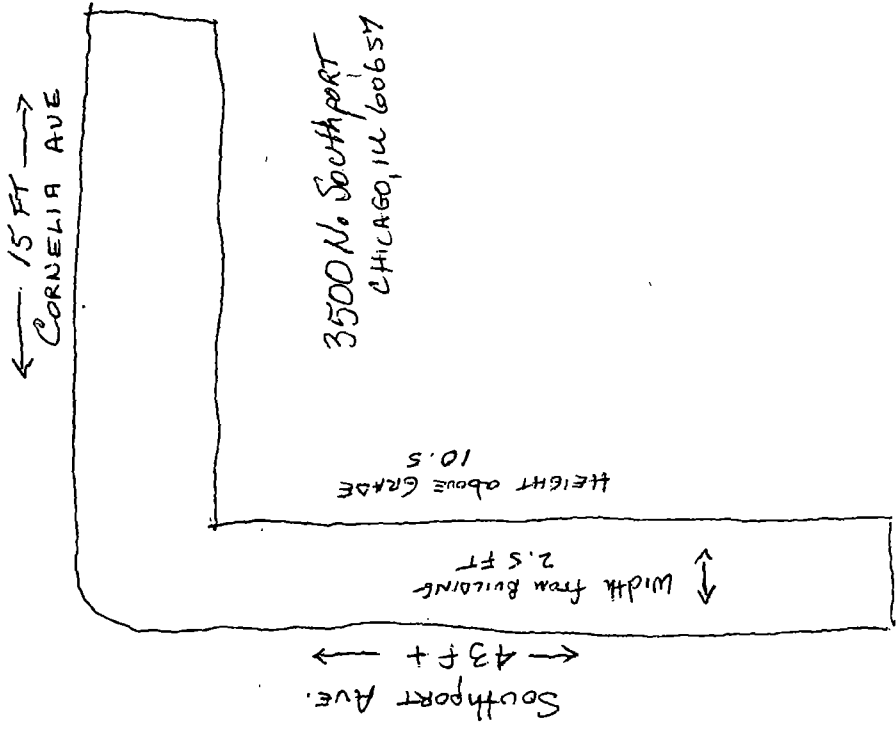 ← 15 FT →
CORNELIA AVE
3500 No. Southport
CHICAGO, IL 60657
HEIGHT above GRADE
10.5
Width from BUILDING
2.5 FT
Southport AVE.
← 43 Ft →